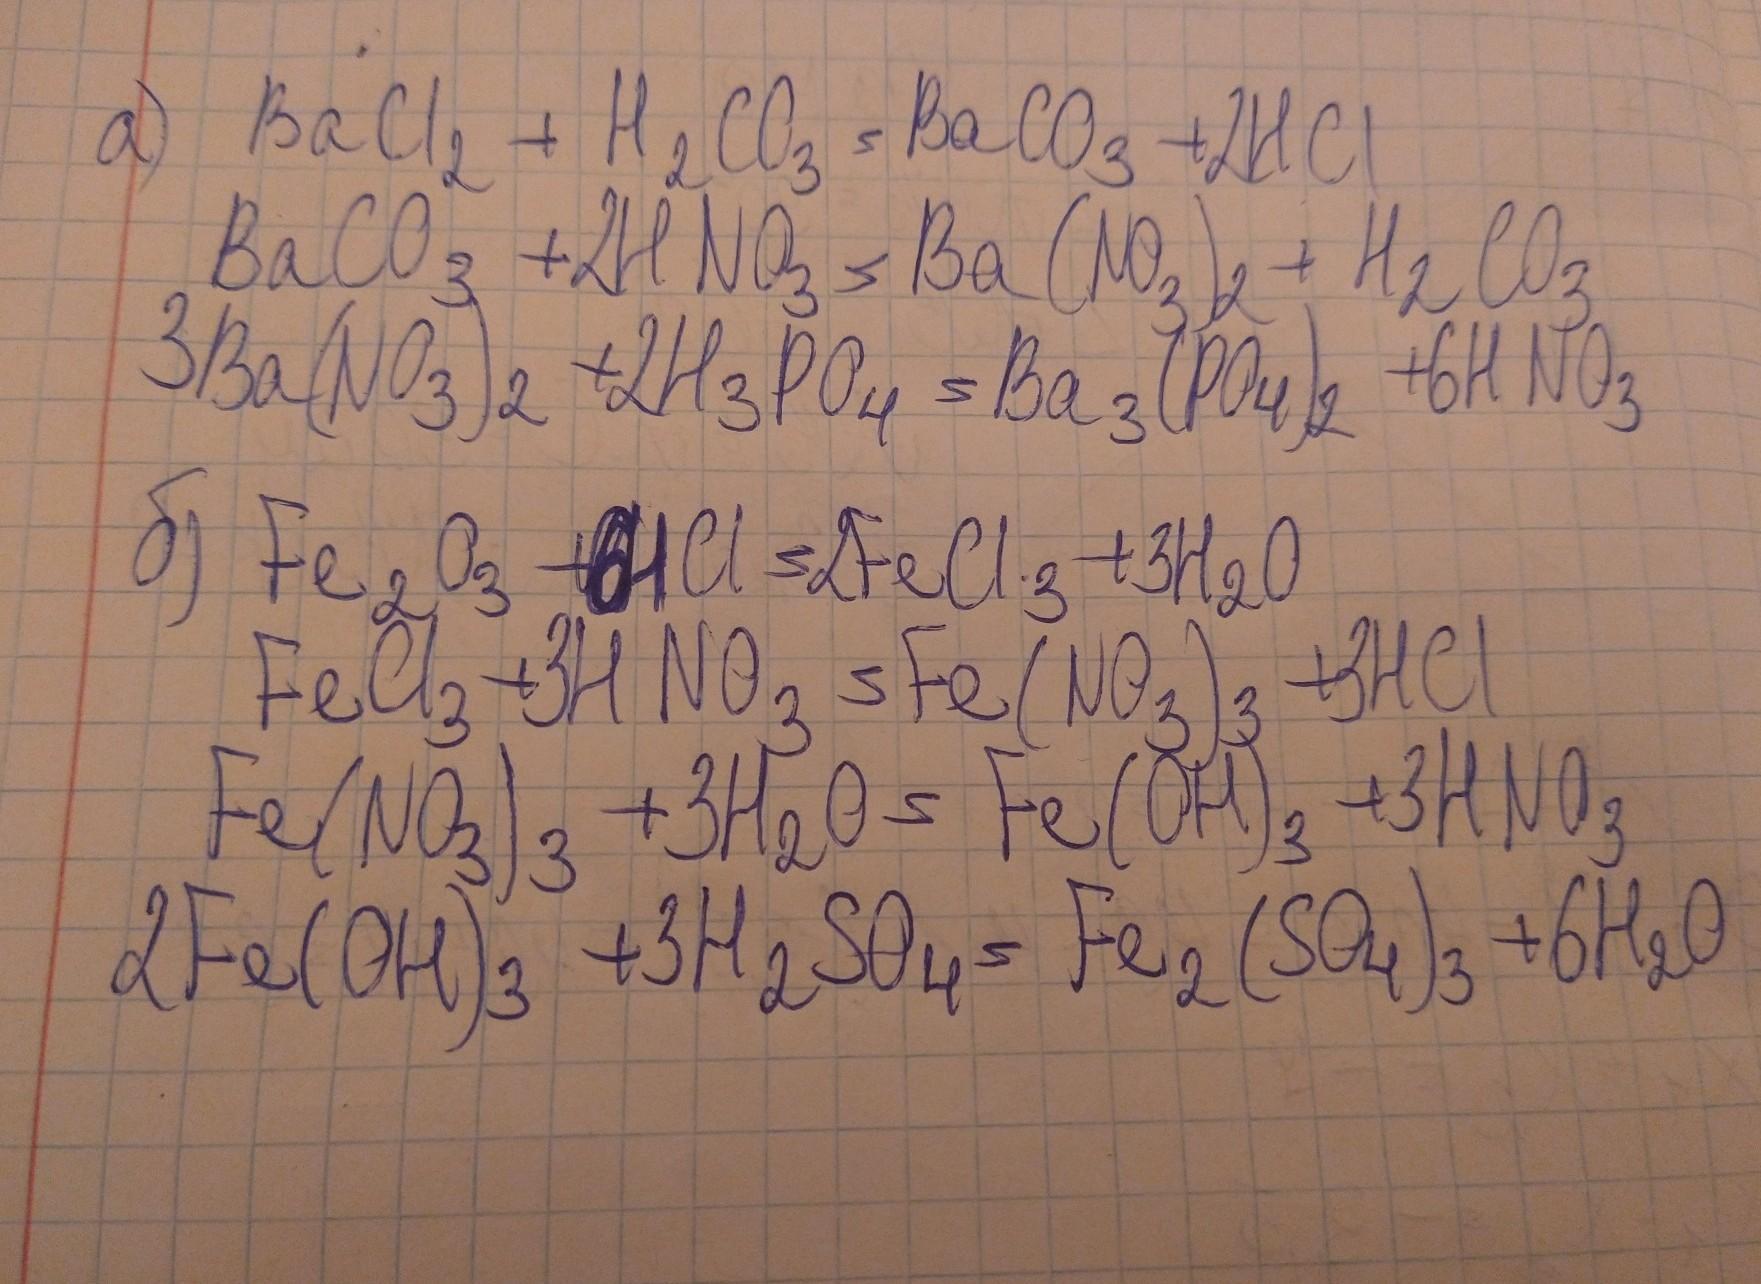 а) BaCl₂ + H₂CO₃ = BaCO₃ + 2HCl
BaCO₃ + 2HNO₃ = Ba(NO₃)₂ + H₂CO₃
3Ba(NO₃)₂ + 2H₃PO₄ = Ba₃(PO₄)₂ + 6HNO₃
б) Fe₂O₃ + 6HCl = 2FeCl₃ + 3H₂O
FeCl₃ + 3HNO₃ = Fe(NO₃)₃ + 3HCl
Fe(NO₃)₃ + 3H₂O = Fe(OH)₃ + 3HNO₃
2Fe(OH)₃ + 3H₂SO₄ = Fe₂(SO₄)₃ + 6H₂O